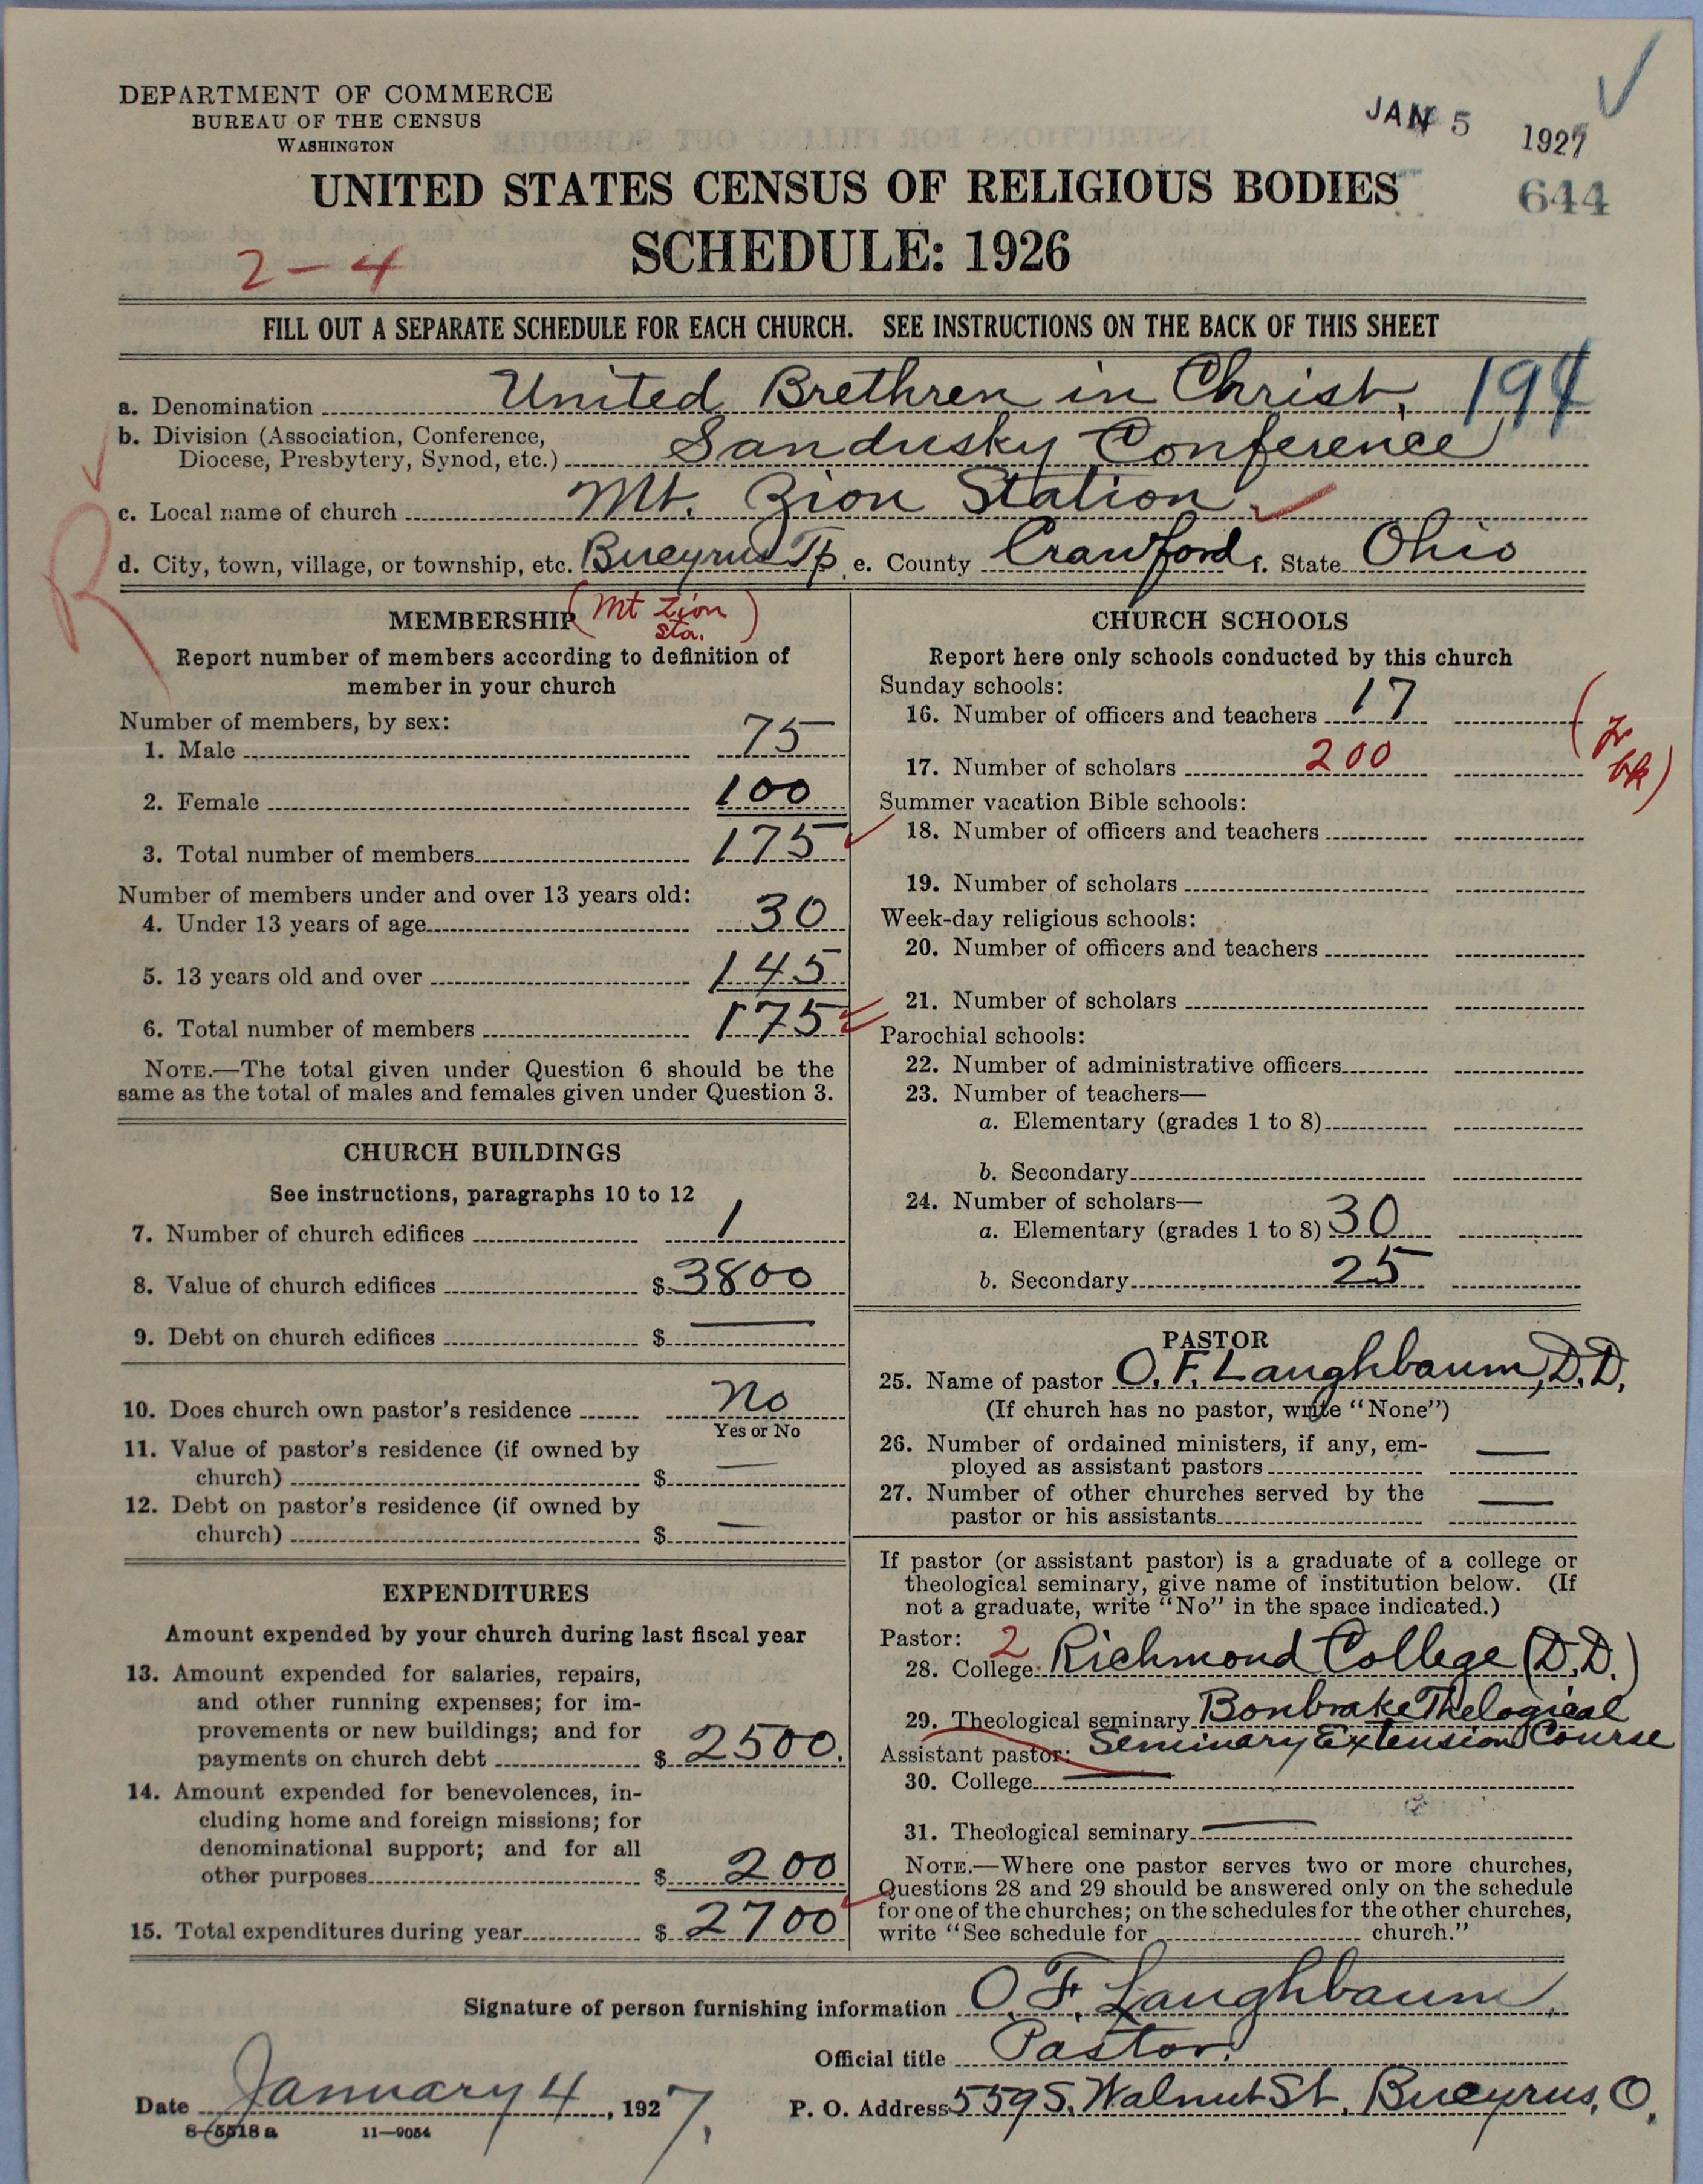 DEPARTMENT OF COMMERCE
BUREAU OF THE CENSUS
WASHINGTON
JAN 5 1927
644
UNITED STATES CENSUS OF RELIGIOUS BODIES
SCHEDULE: 1926
2-4
FILL OUT A SEPARATE SCHEDULE FOR EACH CHURCH. SEE INSTRUCTIONS ON THE BACK OF THIS SHEET
a. Denomination United Brethren in Christ, 194
b. Division (Association, Conference,
Diocese, Presbytery, Synod, etc.) Sandusky Conference
c. Local name of church Mt. Zion Station
d. City, town, village, or township, etc. Bucyrus Tp. e. County Crawford f. State Ohio
R
MEMBERSHIP (Mt Zion
sta.)
Report number of members according to definition of
member in your church
Number of members, by sex:
1. Male 75
2. Female 100
3. Total number of members 175
Number of members under and over 13 years old:
4. Under 13 years of age 30
5. 13 years old and over 145
6. Total number of members 175
NOTE.—The total given under Question 6 should be the
same as the total of males and females given under Question 3.
CHURCH BUILDINGS
See instructions, paragraphs 10 to 12
7. Number of church edifices 1
8. Value of church edifices $ 3800
9. Debt on church edifices $ —
10. Does church own pastor's residence No
Yes or No
11. Value of pastor's residence (if owned by
church) $ —
12. Debt on pastor's residence (if owned by
church) $ —
EXPENDITURES
Amount expended by your church during last fiscal year
13. Amount expended for salaries, repairs,
and other running expenses; for im-
provements or new buildings; and for
payments on church debt $ 2500.
14. Amount expended for benevolences, in-
cluding home and foreign missions; for
denominational support; and for all
other purposes $ 200
15. Total expenditures during year $ 2700
CHURCH SCHOOLS
Report here only schools conducted by this church
Sunday schools:
16. Number of officers and teachers 17
17. Number of scholars 200
(Yr
bk)
Summer vacation Bible schools:
18. Number of officers and teachers
19. Number of scholars
Week-day religious schools:
20. Number of officers and teachers
21. Number of scholars
Parochial schools:
22. Number of administrative officers
23. Number of teachers—
a. Elementary (grades 1 to 8)
b. Secondary
24. Number of scholars—
a. Elementary (grades 1 to 8) 30
b. Secondary 25
PASTOR
25. Name of pastor O. F. Laughbaum, D.D.
(If church has no pastor, write "None")
26. Number of ordained ministers, if any, em-
ployed as assistant pastors —
27. Number of other churches served by the
pastor or his assistants —
If pastor (or assistant pastor) is a graduate of a college or
theological seminary, give name of institution below. (If
not a graduate, write "No" in the space indicated.)
Pastor: 2
28. College Richmond College (D.D.)
29. Theological seminary Bonbrake Thelogical
Assistant pastor: Seminary Extension Course
30. College —
31. Theological seminary —
NOTE.—Where one pastor serves two or more churches,
Questions 28 and 29 should be answered only on the schedule
for one of the churches; on the schedules for the other churches,
write "See schedule for church."
Signature of person furnishing information O. F. Laughbaum,
Official title Pastor.
Date January 4, 1927. P. O. Address 559 S. Walnut St., Bucyrus, O.
8-5518 a 11-9054